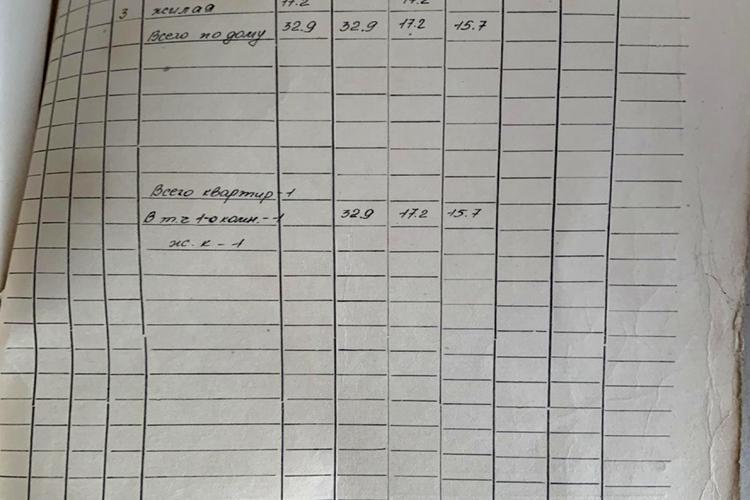 3 жилая 17.2 17.2
Всего по дому 32.9 32.9 17.2 15.7
Всего квартир-1
В т.ч 1-о комн.-1 32.9 17.2 15.7
ж.к-1